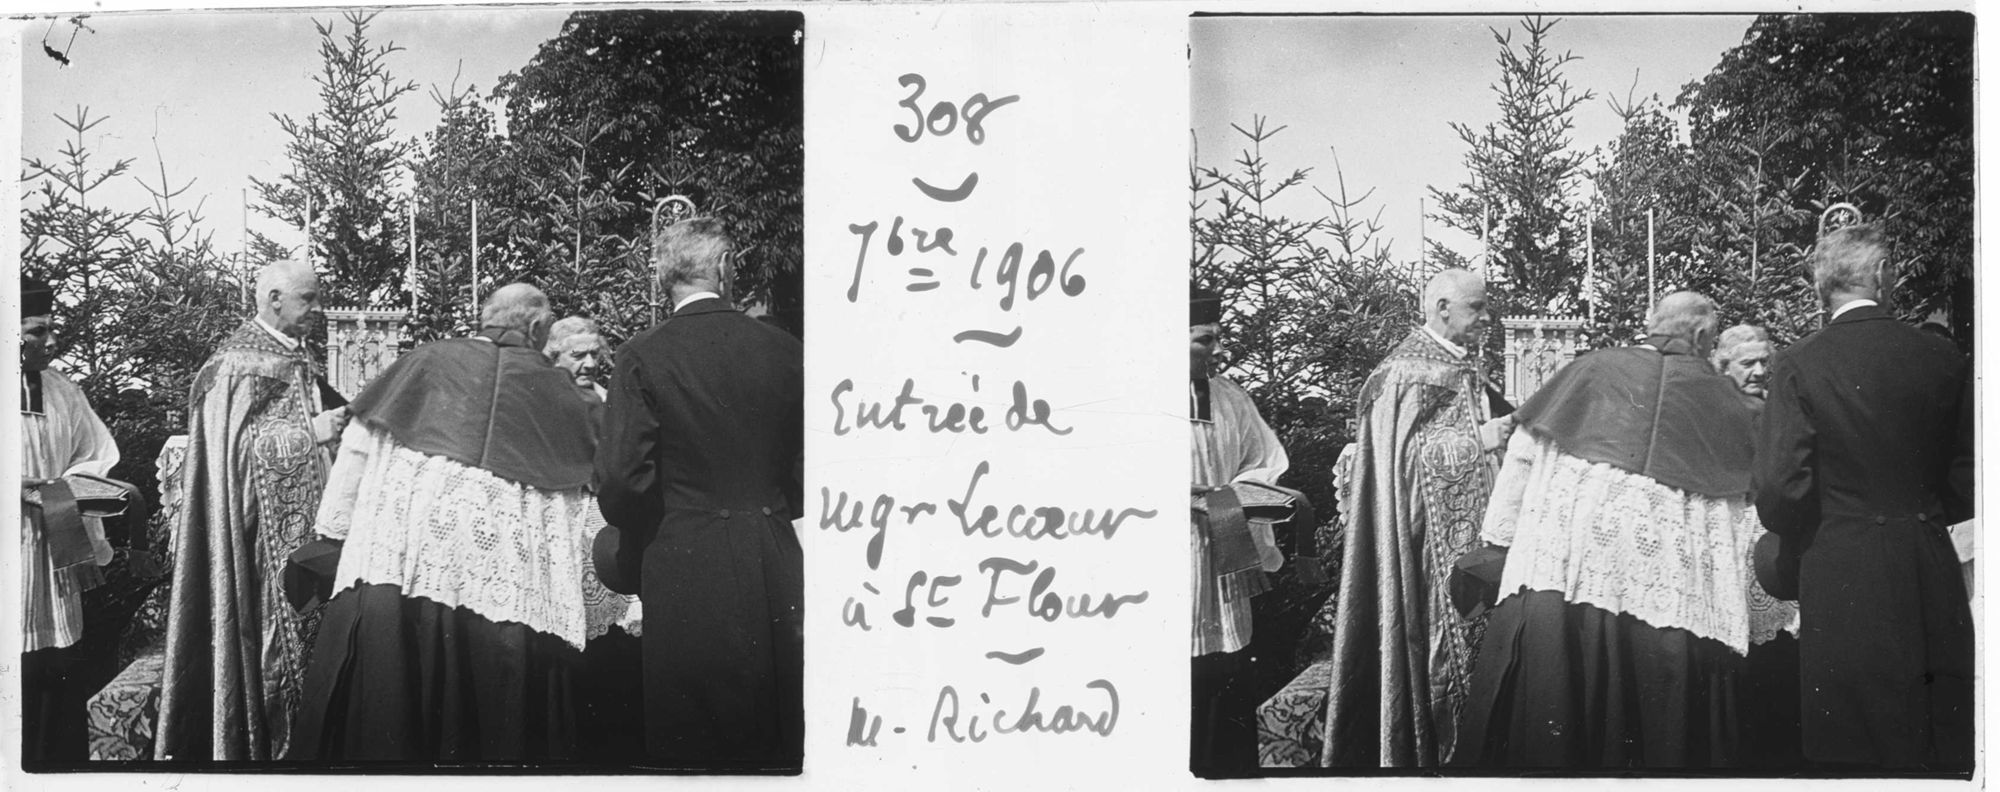 308
7bre 1906
Entrée de
Mgr Lecœur
à St Flour
M. Richard